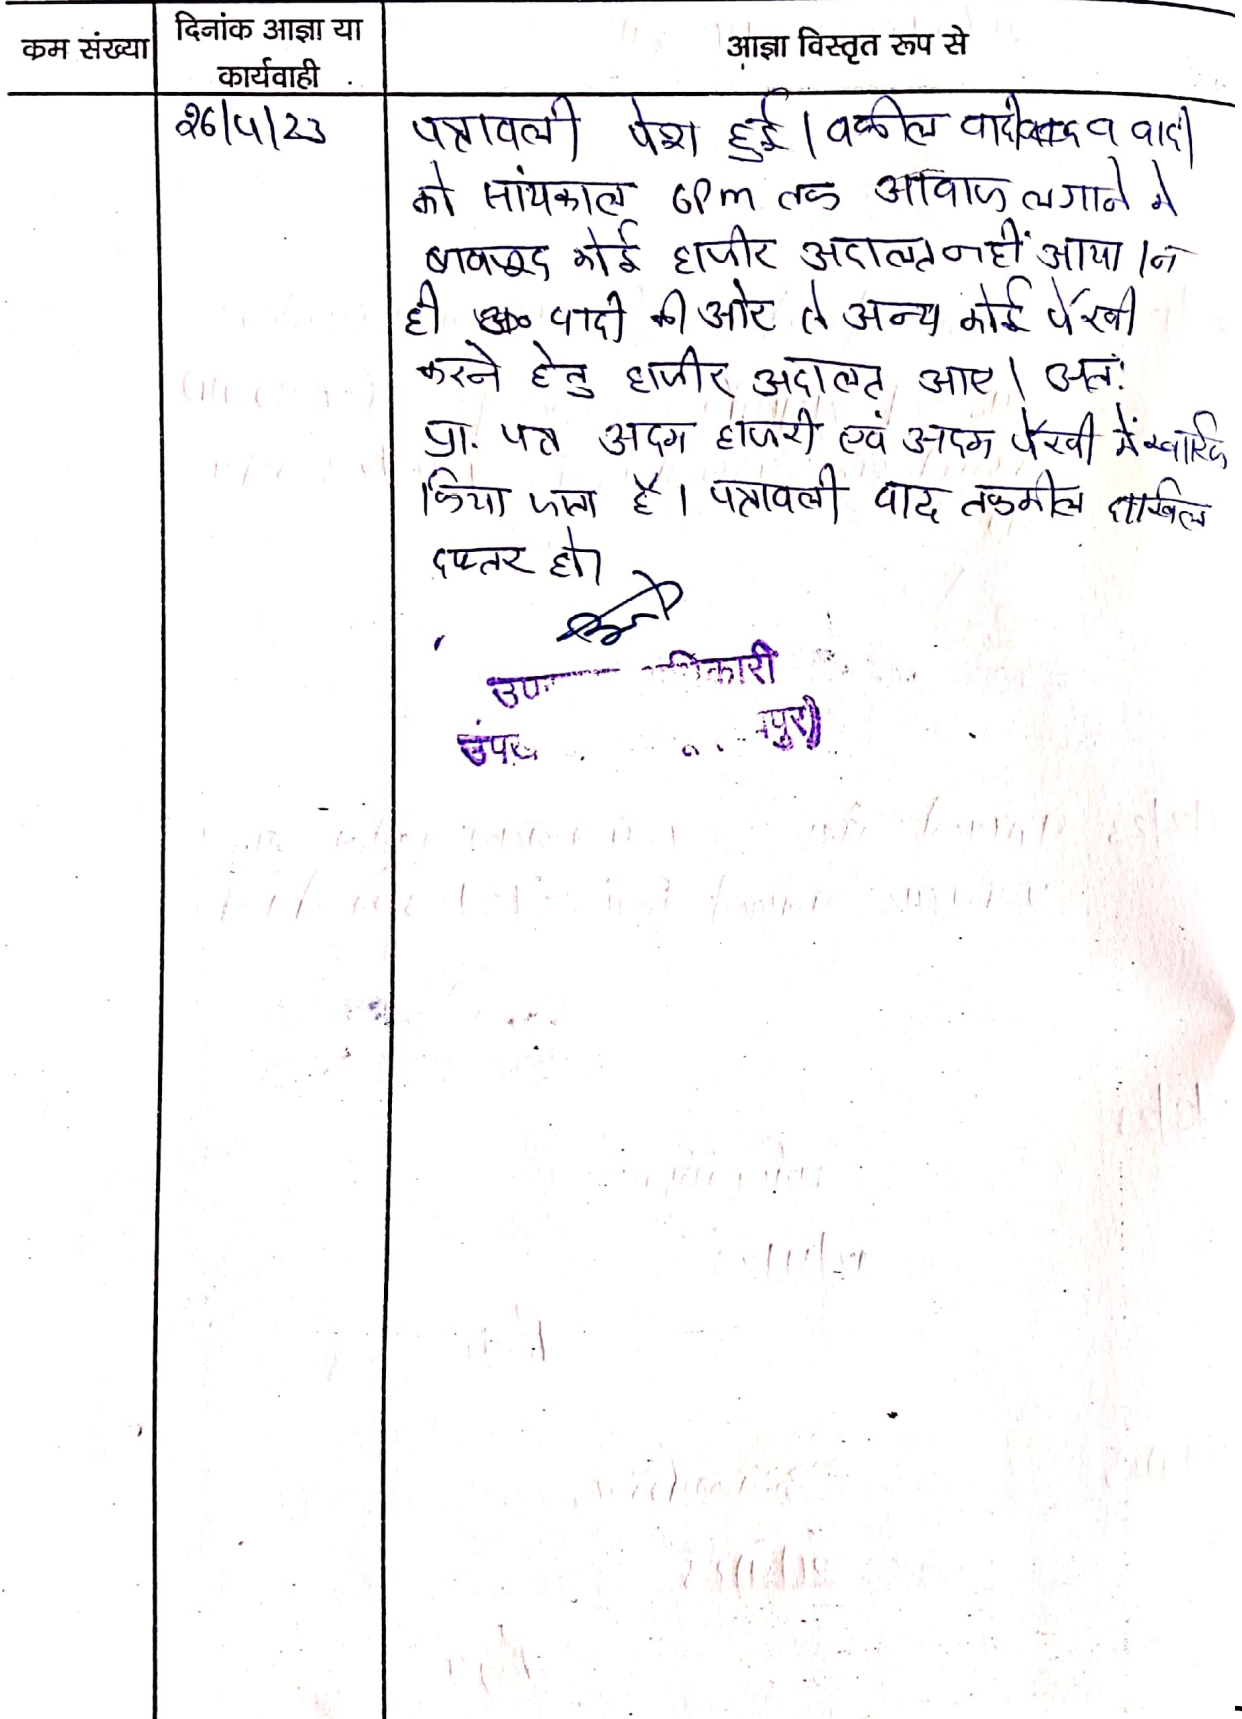 कम संख्या
दिनांक आज्ञा या
कार्यवाही
आज्ञा विस्तृत रूप से
26/4/23
पत्रावली पेश हुई। वकील वादी व वादी
को सांयकाल 6Pm तक आवाज लगाने के
बावजूद कोई हाजीर अदालत नहीं आया। न
ही वादी की ओर से अन्य कोई पैरवी
करने हेतु हाजीर अदालत आए। अतः
प्रा. पत्र अदम हाजरी एवं अदम पैरवी में खारिज
किया जाता है। पत्रावली बाद तकमील दाखिल
दफ्तर हो।